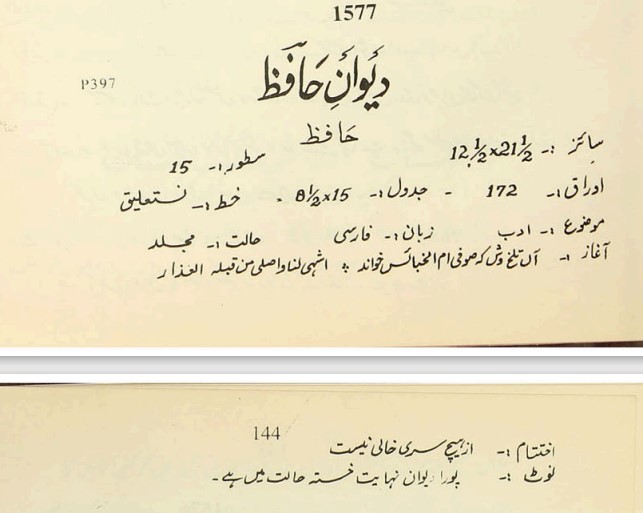 1577
دیوانِ حافظ
P397
حافظ
سائز :۔ 12½x21½ سطور:۔ 15
اوراق:۔ 172 ۔ جدول:۔ 8½x15 ۔ خط:۔ نستعلیق
موضوع :۔ ادب زبان:۔ فارسی حالت:۔ مجلد
آغاز :۔ آں تلخ وش کہ صوفی ام الخبائس خواند ؛ اشہی لنا واصلی من قبلہ العذار
144
اختتام :۔ از ہیچ سری خالی نیست
نوٹ :۔ پورا دیوان نہایت خستہ حالت میں ہے ۔